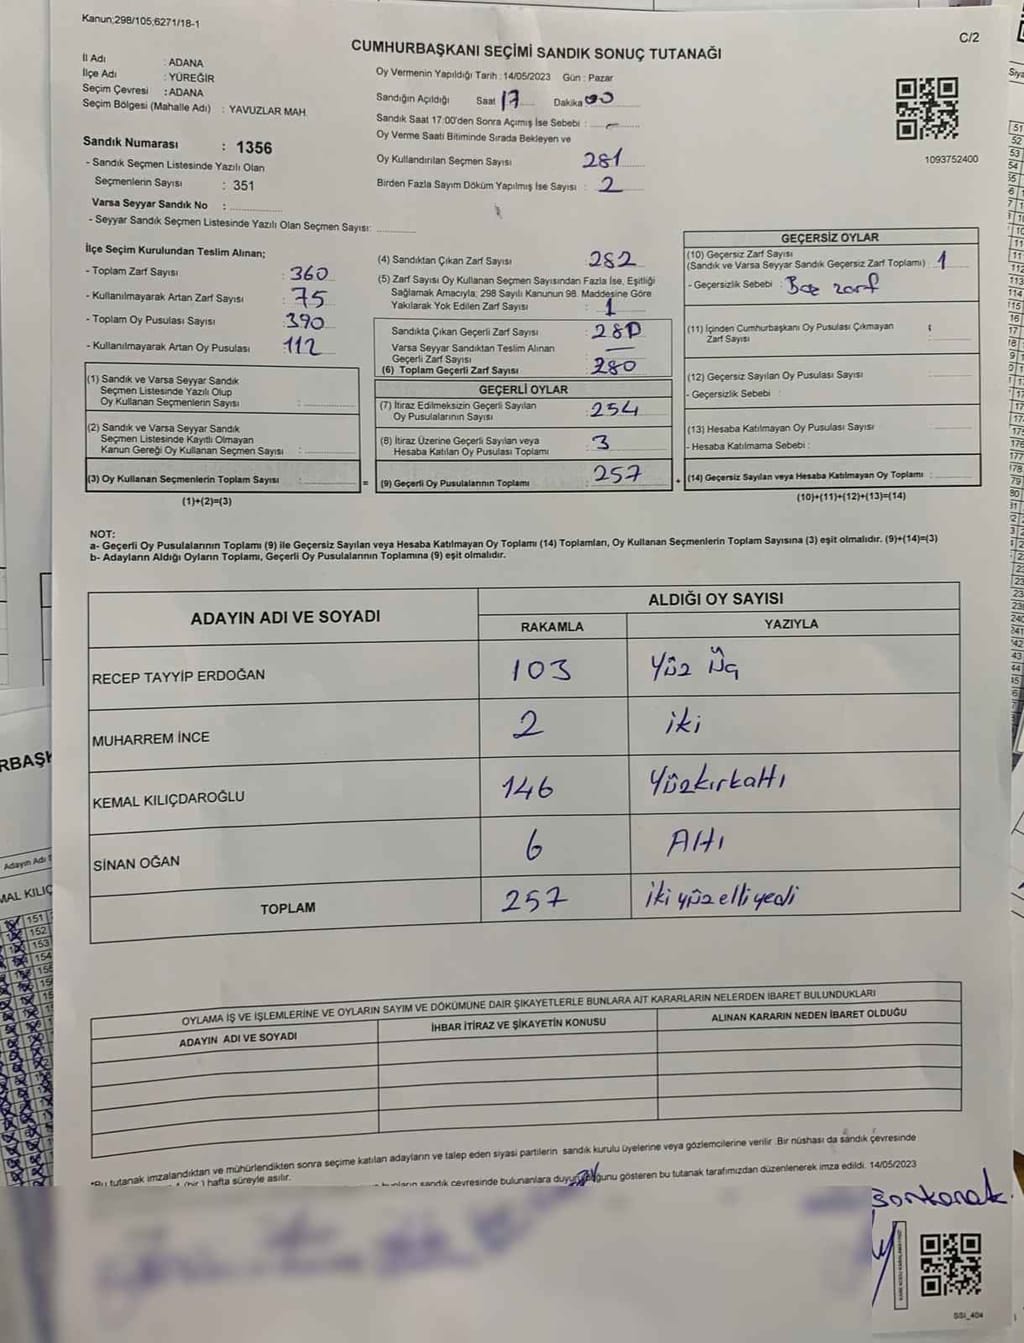 Kanun;298/105;6271/18-1
C/2
CUMHURBAŞKANI SEÇİMİ SANDIK SONUÇ TUTANAĞI
İl Adı : ADANA
İlçe Adı : YÜREĞİR
Seçim Çevresi : ADANA
Seçim Bölgesi (Mahalle Adı) : YAVUZLAR MAH.
Oy Vermenin Yapıldığı Tarih : 14/05/2023 Gün : Pazar
Sandığın Açıldığı Saat 17 Dakika 00
Sandık Saat 17:00'den Sonra Açımış İse Sebebi : –
Oy Verme Saati Bitiminde Sırada Bekleyen ve
Oy Kullandırılan Seçmen Sayısı 281
Birden Fazla Sayım Döküm Yapılmış İse Sayısı : 2
1093752400
Sandık Numarası : 1356
- Sandık Seçmen Listesinde Yazılı Olan
Seçmenlerin Sayısı : 351
Varsa Seyyar Sandık No :
- Seyyar Sandık Seçmen Listesinde Yazılı Olan Seçmen Sayısı:
İlçe Seçim Kurulundan Teslim Alınan;
- Toplam Zarf Sayısı : 360
- Kullanılmayarak Artan Zarf Sayısı : 75
- Toplam Oy Pusulası Sayısı : 390
- Kullanılmayarak Artan Oy Pusulası : 112
(1) Sandık ve Varsa Seyyar Sandık
Seçmen Listesinde Yazılı Olup
Oy Kullanan Seçmenlerin Sayısı :
(2) Sandık ve Varsa Seyyar Sandık
Seçmen Listesinde Kayıtlı Olmayan
Kanun Gereği Oy Kullanan Seçmen Sayısı :
(3) Oy Kullanan Seçmenlerin Toplam Sayısı : =
(1)+(2)=(3)
(4) Sandıktan Çıkan Zarf Sayısı : 282
(5) Zarf Sayısı Oy Kullanan Seçmen Sayısından Fazla İse, Eşitliği
Sağlamak Amacıyla; 298 Sayılı Kanunun 98. Maddesine Göre
Yakılarak Yok Edilen Zarf Sayısı : 1
Sandıkta Çıkan Geçerli Zarf Sayısı : 280
Varsa Seyyar Sandıktan Teslim Alınan
Geçerli Zarf Sayısı : —
(6) Toplam Geçerli Zarf Sayısı : 280
GEÇERLİ OYLAR
(7) İtiraz Edilmeksizin Geçerli Sayılan
Oy Pusulalarının Sayısı : 254
(8) İtiraz Üzerine Geçerli Sayılan veya
Hesaba Katılan Oy Pusulası Toplamı : 3
(9) Geçerli Oy Pusulalarının Toplamı : 257 +
GEÇERSİZ OYLAR
(10) Geçersiz Zarf Sayısı
(Sandık ve Varsa Seyyar Sandık Geçersiz Zarf Toplamı) : 1
- Geçersizlik Sebebi : Boş zarf
(11) İçinden Cumhurbaşkanı Oy Pusulası Çıkmayan
Zarf Sayısı :
(12) Geçersiz Sayılan Oy Pusulası Sayısı
- Geçersizlik Sebebi :
(13) Hesaba Katılmayan Oy Pusulası Sayısı
- Hesaba Katılmama Sebebi :
(14) Geçersiz Sayılan veya Hesaba Katılmayan Oy Toplamı :
(10)+(11)+(12)+(13)=(14)
NOT:
a- Geçerli Oy Pusulalarının Toplamı (9) ile Geçersiz Sayılan veya Hesaba Katılmayan Oy Toplamı (14) Toplamları, Oy Kullanan Seçmenlerin Toplam Sayısına (3) eşit olmalıdır. (9)+(14)=(3)
b- Adayların Aldığı Oyların Toplamı, Geçerli Oy Pusulalarının Toplamına (9) eşit olmalıdır.
ADAYIN ADI VE SOYADI
ALDIĞI OY SAYISI
RAKAMLA YAZIYLA
RECEP TAYYİP ERDOĞAN 103 Yüz Üç
MUHARREM İNCE 2 iki
KEMAL KILIÇDAROĞLU 146 Yüzkırkaltı
SİNAN OĞAN 6 Altı
TOPLAM 257 ikiyüzelliyedi
OYLAMA İŞ VE İŞLEMLERİNE VE OYLARIN SAYIM VE DÖKÜMÜNE DAİR ŞİKAYETLERLE BUNLARA AİT KARARLARIN NELERDEN İBARET BULUNDUKLARI
ADAYIN ADI VE SOYADI İHBAR İTİRAZ VE ŞİKAYETİN KONUSU ALINAN KARARIN NEDEN İBARET OLDUĞU
*Bu tutanak imzalandıktan ve mühürlendikten sonra seçime katılan adayların ve talep eden siyasi partilerin sandık kurulu üyelerine veya gözlemcilerine verilir .Bir nüshası da sandık çevresinde
(bir ) hafta süreyle asılır.
bunların sandık çevresinde bulunanlara duyurulduğunu gösteren bu tutanak tarafımızdan düzenlenerek imza edildi. 14/05/2023
SSI_404